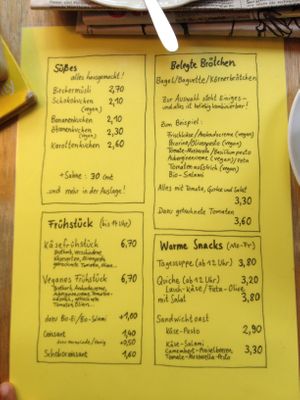 Süßes
alles hausgemacht!
Bechermüsli 2,70
Schokokuchen 2,10
(vegan)
Bananenkuchen 2,10
Blumenkuchen 2,30
(vegan)
Karottenkuchen 2,60
+ Sahne : 30 Cent
und mehr in der Auslage!
Belegte Brötchen
Bagel/Baguette/Körnerbrötchen
Zur Auswahl steht Einiges –
und alles ist beliebig kombinierbar!
Zum Beispiel:
(vegan)
Tomate-Mozzarella / Basilikumpesto
Auberginencreme (vegan) / Feta
Tomatenaufstrich (vegan)
Bio-Salami
Alles mit Tomate, Gurke und Salat
3,30
Dazu getrocknete Tomaten
3,60
Frühstück (bis 14 Uhr)
Käsefrühstück 6,70
getrocknete Tomate,
Veganes Frühstück 6,70
dazu Bio-Ei/Bio-Salami +1,00
Croissant 1,40
Marmelade/Honig +0,50
Schokocroissant 1,60
Warme Snacks (Mo-Fr)
Tagessuppe (ab 12 Uhr) 3,80
Quiche (ab 12 Uhr) 3,20
Lauch-Käse / Feta-Olive
mit Salat 3,80
Sandwichtoast
Käse-Pesto 2,90
Käse-Salami
Camembert-Preiselbeeren 3,30
Tomate-Mozzarella-Pesto